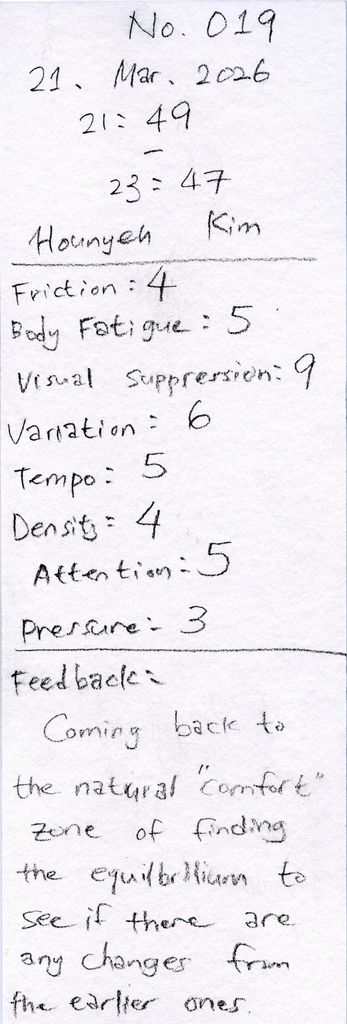 No. 019
21. Mar. 2026
21: 49
–
23: 47
Hounyeh Kim
Friction: 4
Body Fatigue: 5
Visual Suppression: 9
Variation: 6
Tempo: 5
Density: 4
Attention: 5
Pressure: 3
Feedback:
Coming back to
the natural "comfort"
zone of finding
the equilbrllium to
see if there are
any changes from
the earlier ones.